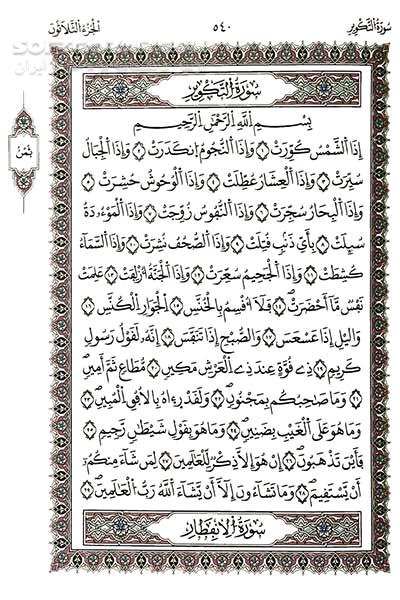 سُورَةُ التَّكْوِير ٥٤٠ الجُزءُ الثَّلَاثُونَ
سُورَةُ التَّكْوِيرِ
بِسْمِ اللَّهِ الرَّحْمَٰنِ الرَّحِيمِ
إِذَا الشَّمْسُ كُوِّرَتْ ١ وَإِذَا النُّجُومُ انكَدَرَتْ ٢ وَإِذَا الْجِبَالُ
سُيِّرَتْ ٣ وَإِذَا الْعِشَارُ عُطِّلَتْ ٤ وَإِذَا الْوُحُوشُ حُشِرَتْ ٥
وَإِذَا الْبِحَارُ سُجِّرَتْ ٦ وَإِذَا النُّفُوسُ زُوِّجَتْ ٧ وَإِذَا الْمَوْءُودَةُ
سُئِلَتْ ٨ بِأَيِّ ذَنْبٍ قُتِلَتْ ٩ وَإِذَا الصُّحُفُ نُشِرَتْ ١٠ وَإِذَا السَّمَاءُ
كُشِطَتْ ١١ وَإِذَا الْجَحِيمُ سُعِّرَتْ ١٢ وَإِذَا الْجَنَّةُ أُزْلِفَتْ ١٣ عَلِمَتْ
نَفْسٌ مَّا أَحْضَرَتْ ١٤ فَلَا أُقْسِمُ بِالْخُنَّسِ ١٥ الْجَوَارِ الْكُنَّسِ ١٦
وَالَّيْلِ إِذَا عَسْعَسَ ١٧ وَالصُّبْحِ إِذَا تَنَفَّسَ ١٨ إِنَّهُ لَقَوْلُ رَسُولٍ
كَرِيمٍ ١٩ ذِي قُوَّةٍ عِندَ ذِي الْعَرْشِ مَكِينٍ ٢٠ مُّطَاعٍ ثَمَّ أَمِينٍ
٢١ وَمَا صَاحِبُكُم بِمَجْنُونٍ ٢٢ وَلَقَدْ رَءَاهُ بِالْأُفُقِ الْمُبِينِ ٢٣
وَمَا هُوَ عَلَى الْغَيْبِ بِضَنِينٍ ٢٤ وَمَا هُوَ بِقَوْلِ شَيْطَانٍ رَّجِيمٍ ٢٥
فَأَيْنَ تَذْهَبُونَ ٢٦ إِنْ هُوَ إِلَّا ذِكْرٌ لِّلْعَالَمِينَ ٢٧ لِمَن شَاءَ مِنكُمْ
أَن يَسْتَقِيمَ ٢٨ وَمَا تَشَاءُونَ إِلَّا أَن يَشَاءَ اللَّهُ رَبُّ الْعَالَمِينَ ٢٩
سُورَةُ الْانفِطَارِ
ثمن